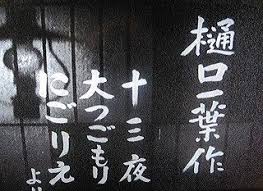 樋口一葉作
十三夜
大つごもり
にごりえ
より